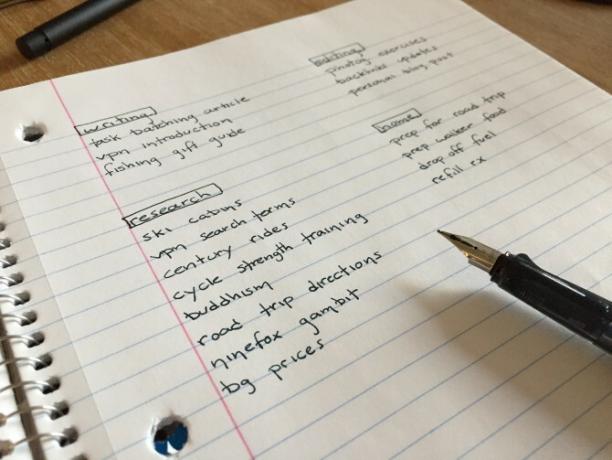 writing
task batching article
vpn introduction
fishing gift guide
research
ski cabins
vpn search terms
century rides
cycle strength training
buddhism
road trip directions
ninefox gambit
bg prices
editing
photog exercises
backlinks updates
personal blog post
home
prep for road trip
prep walker food
drop off fuel
refill rx